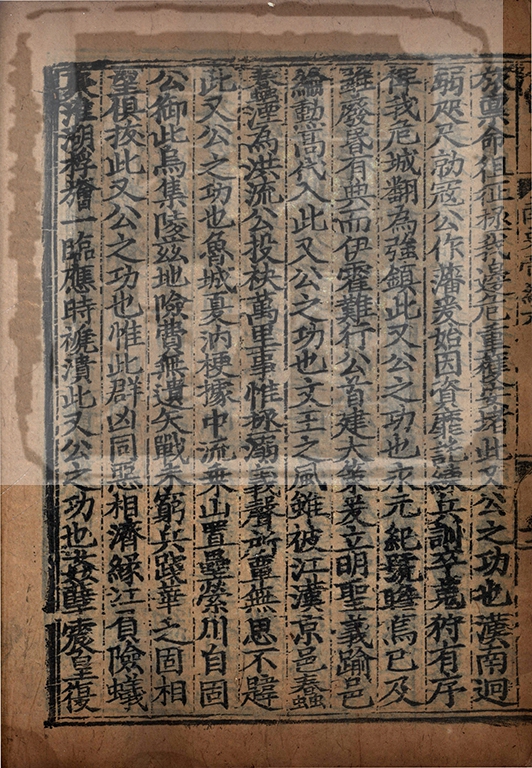 命徂征極我邊危重獲安堵此又公之功也漢南迥
弱咫尺勍寇公作藩爰始因資靡託練兵訓卒蒐狩有序
俾我危城翻為強鎮此又公之功也永元紀號瞻烏已及
雖廢昏有典而伊霍難行公首建大策爰立明聖義踰邑
綸勳高代入此又公之功也文王之風雖被江漢京邑蠢
蠢湮為洪流公投袂萬里事惟拯溺義聲所覃無思不韙
此又公之功也魯城夏汭梗據中流乘山置壘縈川自固
公御此烏集陵茲地險費無遺矢戰未窮兵踐華之固相
望俱拔此又公之功也惟此群凶同惡相濟緣江負險蟻
湖桴艪一臨應時褫潰此又公之功也姦孽震皇復